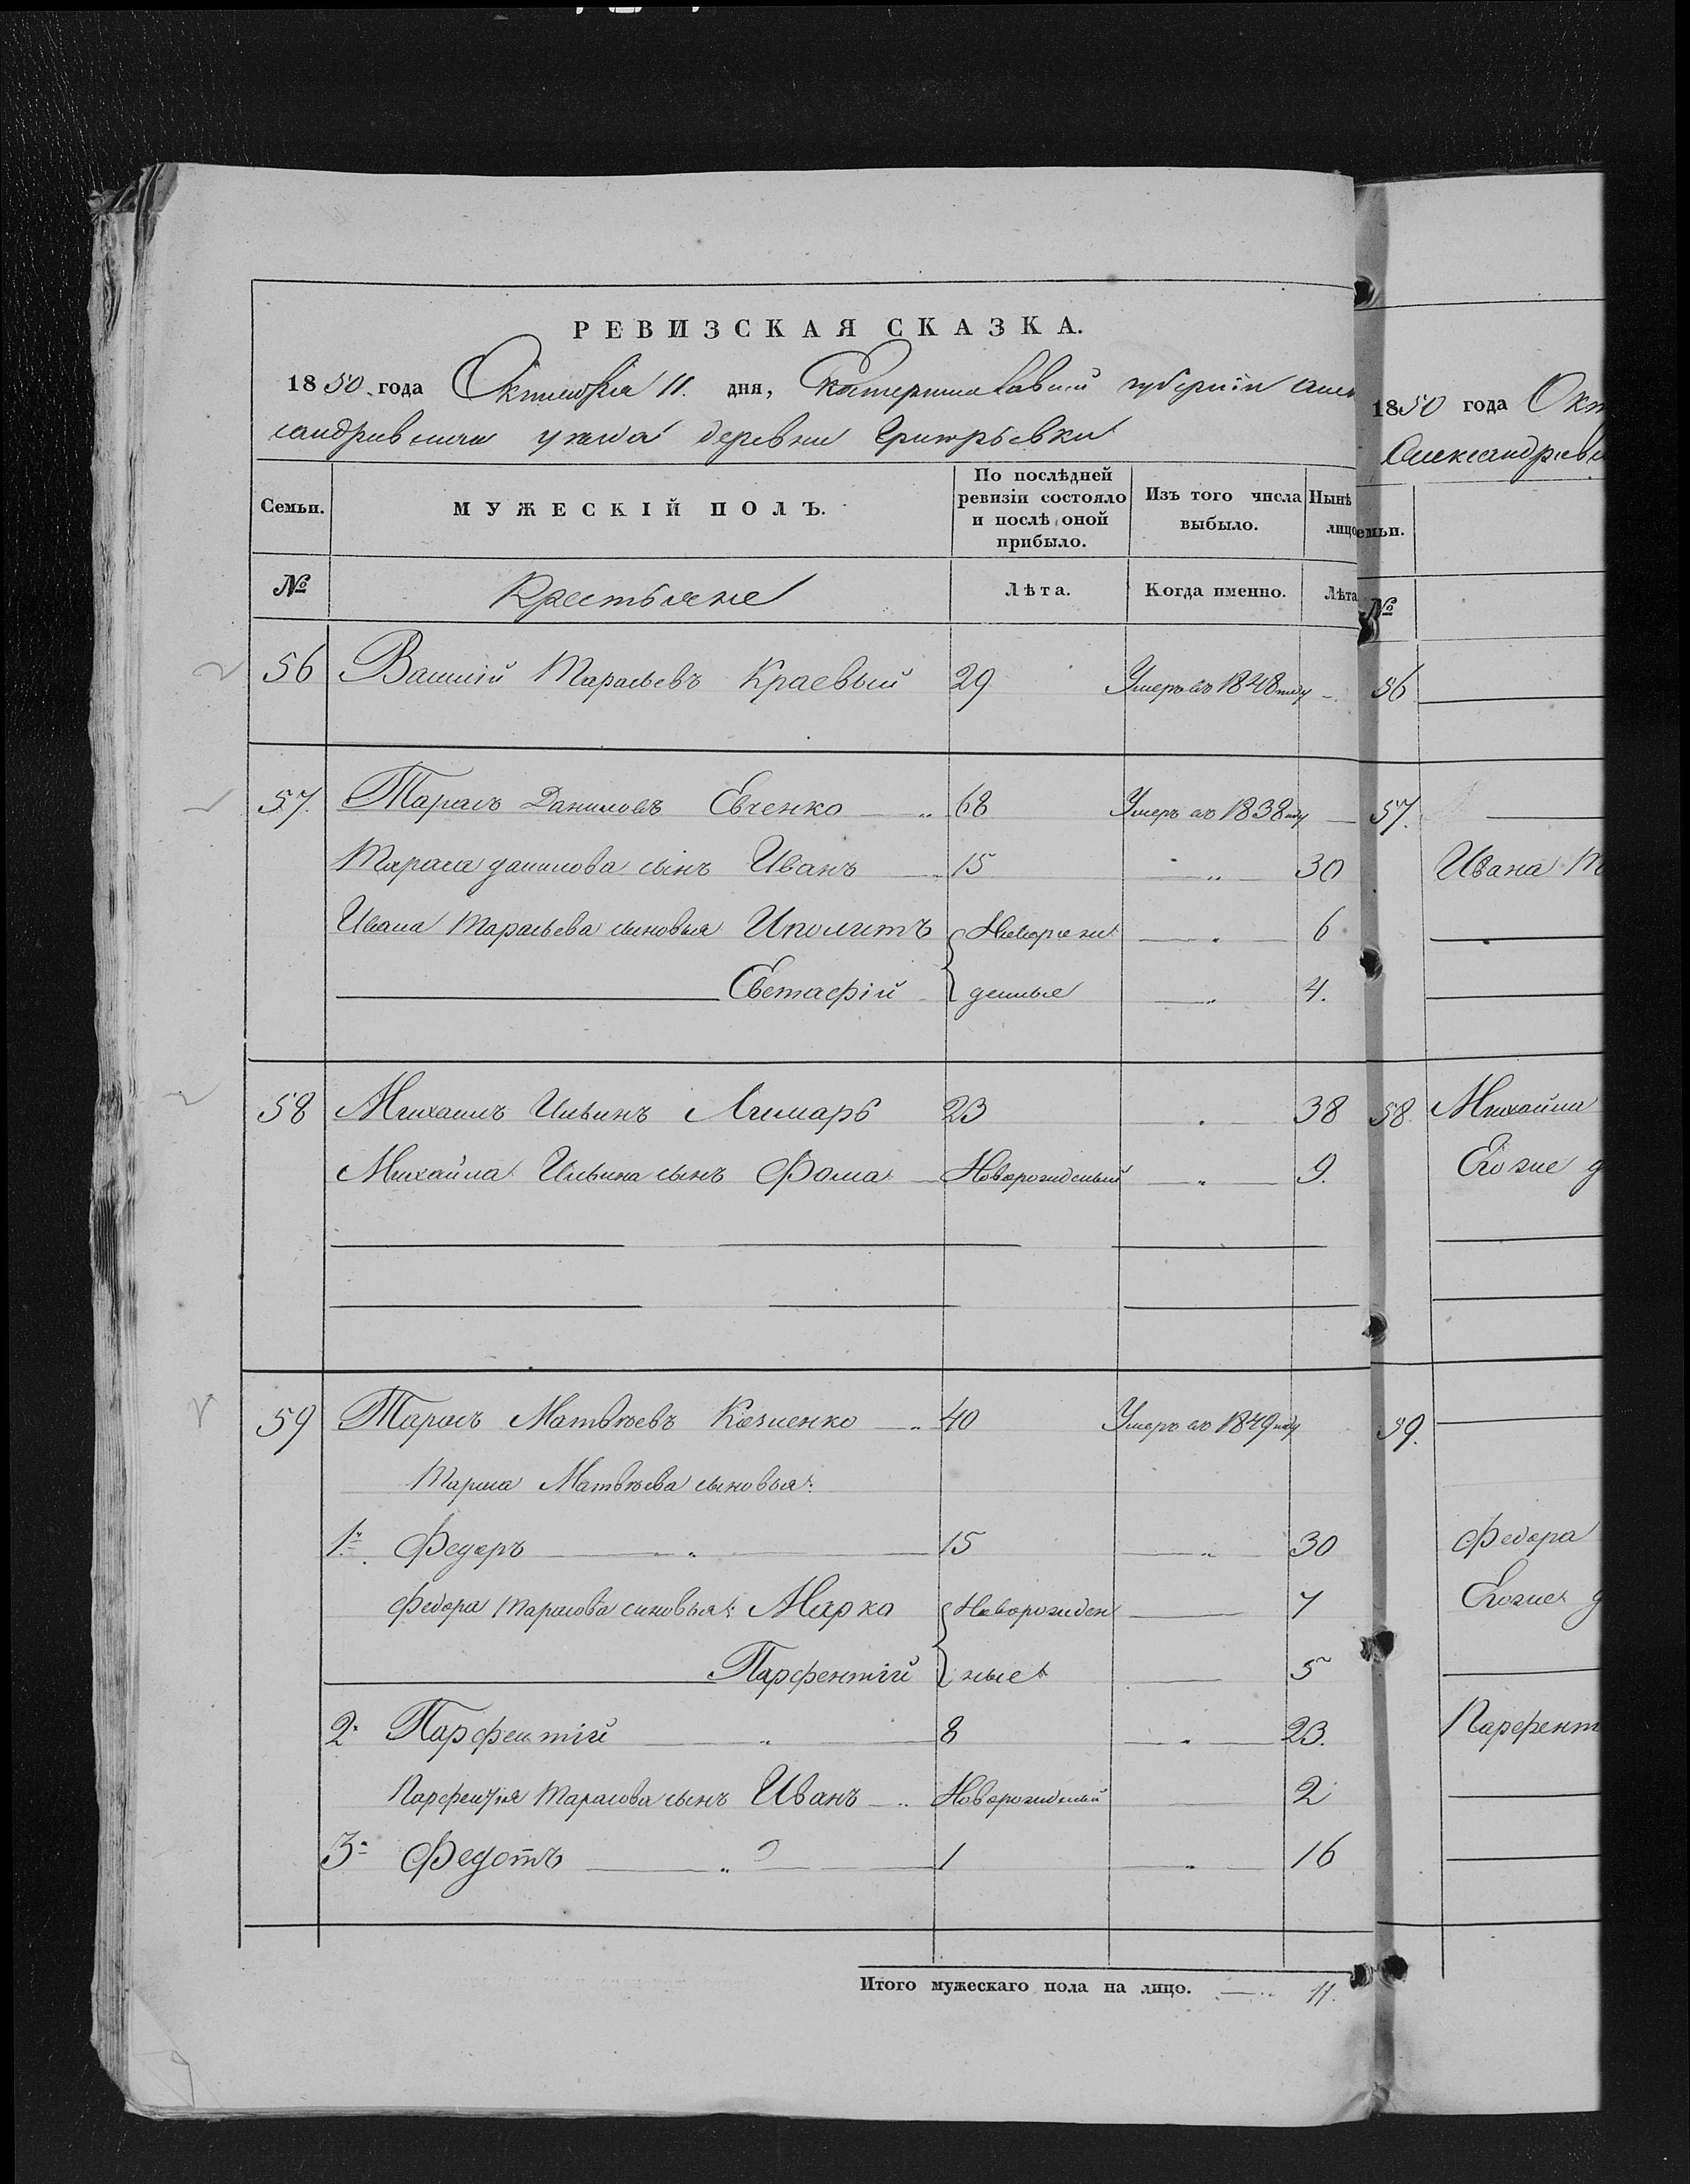 РЕВИЗСКАЯ СКАЗКА.
1850 года Октября 11. дня, Екатеринославской губерніи Алек
сандровскаго уезда деревни Григорьевки
Семьи.
МУЖЕСКІЙ ПОЛЪ.
По послѣдней ревизіи состояло и послѣ оной прибыло.
Изъ того числа выбыло.
Нынѣ лицо
№ Крестьяне Лѣта. Когда именно. Лѣта
56 Василій Тарасьевъ Краевый 29 Умеръ въ 1848 году
57. Тарасъ Даниловъ Евченко 68 Умеръ въ 1838 году
Тараса Данилова сынъ Иванъ 15 30
Ивана Тарасьева сыновья Иполитъ Новорож 6
Евстафій денные 4.
58 Михаилъ Ильинъ Лимарь 23 38
Михайла Ильина сынъ Фома Новорожденый 9.
59 Тарасъ Матвѣевъ Козленко 40 Умеръ въ 1849 году
Тараса Матвѣева сыновья:
1й Федоръ 15 30
Федора Тарасова синовья: Марко Новорожден 7
Парфентій ные 5
2й Парфентій 8 23.
Парфентія Тарасова сынъ Иванъ Новорожденый 2
3й Федотъ 1 16
Итого мужескаго пола на лицо. 11.
1850 года Окт
Александровс
емьи.
№
56
57.
Ивана Т
58 Михайла
Егоже д
59.
Федора
Егоже д
Парфент